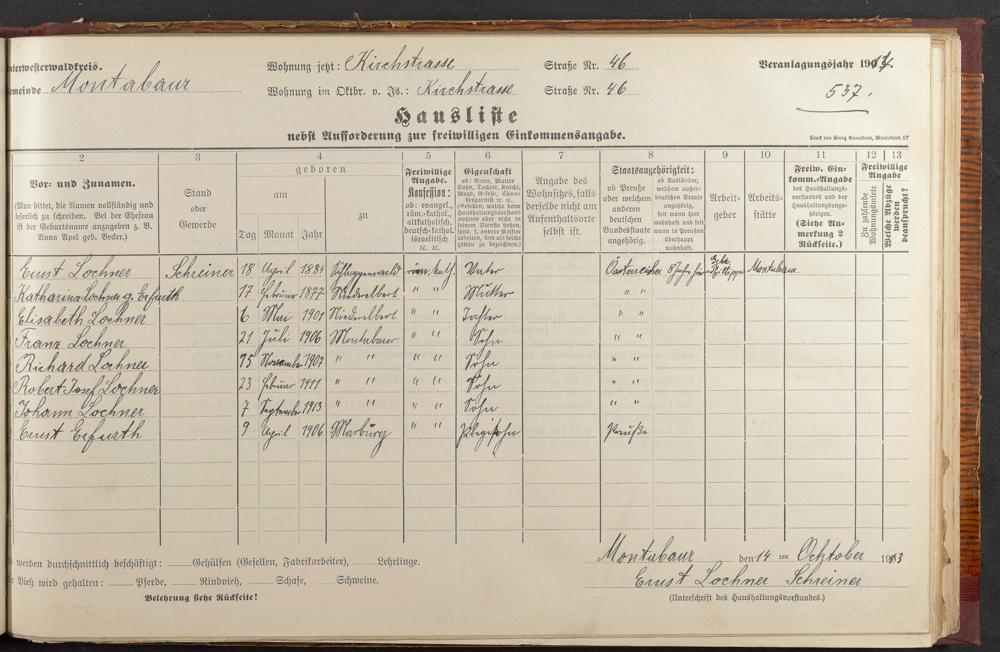 nterwesterwaldkreis. Wohnung jetzt: Kirchstrasse Straße Nr. 46 Veranlagungsjahr 1914.
emeinde Montabaur Wohnung im Oktbr. v. Js.: Kirchstrasse Straße Nr. 46 537.
Hausliste
nebst Aufforderung zur freiwilligen Einkommensangabe.
2 3 4 5 6 7 8 9 10 11 12 13
Vor- und Zunamen.
(Man bittet, die Namen vollständig und
leserlich zu schreiben. Bei der Ehefrau
ist der Geburtsname anzugeben z. B.
Anna Apel geb. Becker.)
Stand
oder
Gewerbe
geboren
am
zu
Tag Monat Jahr
Freiwillige
Angabe.
Konfession:
ob: evangel.,
röm.-kathol.,
altkatholisch,
deutsch-kathol.
israelitisch
ec. ec.
Eigenschaft
ob: Vater, Mutter
Sohn, Tochter, Knecht,
Magd, Geselle,
Angabe des
Wohnsitzes, falls
derselbe nicht am
Aufenthaltsorte
selbst ist.
Staatsangehörigkeit:
ob Preuße
oder welchem
anderen
deutschen
Bundesstaate
angehörig.
ob Ausländer,
welchem außer-
deutschen Staate
angehörig,
seit wann hier
wohnhaft und seit
wann in Preußen
überhaupt
wohnhaft.
Arbeit-
geber
Arbeits-
stätte
Freiw. Ein-
komm.-Angabe
des Haushaltungs-
vorstandes und der
Haushaltungsange-
hörigen.
(Siehe An-
merkung 2
Rückseite.)
Freiwillige
Angabe
Zu zahlende
Wohnungsmiete
Welche Abzüge
werden
beansprucht?
Ernst Lochner Schreiner 18 April 1881 Schlaggenwald röm. kath. Vater Östereicher Montabaur.
Katharina Lochner g. Erfurth 17 Februar 1877 Niederelbert " " Mutter " "
Elisabeth Lochner 6 Mai 1901 Niederelbert " " Tochter " "
Franz Lochner 21 Juli 1906 Montabaur " " Sohn " "
Richard Lochner 15 November 1907 " " " " Sohn " "
Robert Josef Lochner 23 Februar 1911 " " " " Sohn " "
Johann Lochner 7 September 1913 " " " " Sohn " "
Ernst Erfurth 9 April 1906 Marburg Pflegesohn Preuße
werden durchschnittlich beschäftigt: Gehülfen (Gesellen, Fabrikarbeiter), Lehrlinge.
Vieh wird gehalten: Pferde, Rindvieh, Schafe, Schweine.
Belehrung siehe Rückseite!
Montabaur den 14 ten Ocktober 1913
Ernst Lochner Schreiner
(Unterschrift des Haushaltungsvorstandes.)